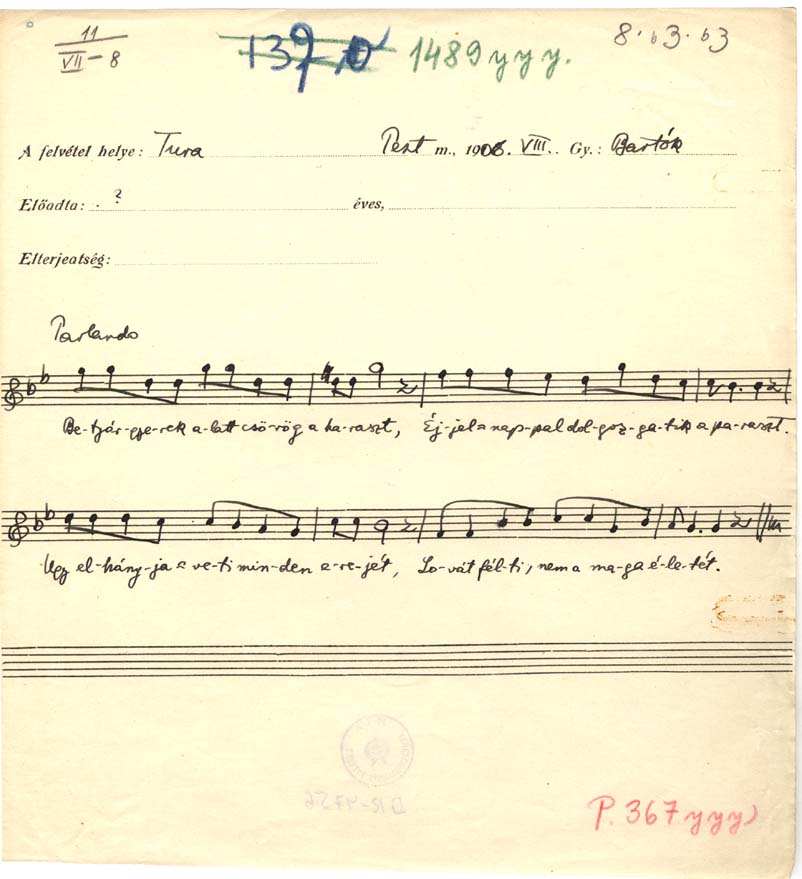 11
VII-8
1489yyy.
8. 63. 63
A felvétel helye: Tura Pest m., 1906. VIII. Gy.: Bartók
Előadta: ? éves,
Elterjedtség:
Parlando
Be-tyár-gye-rek a-latt csö-rög a ha-raszt, Éj-jel-nap-pal dol-goz-ga-tik a pa-raszt.
Ugy el-hány-ja-ve-ti min-den e-re-jét, Lo-vát fél-ti, nem a ma-ga é-le-tét.
P. 367yyy)